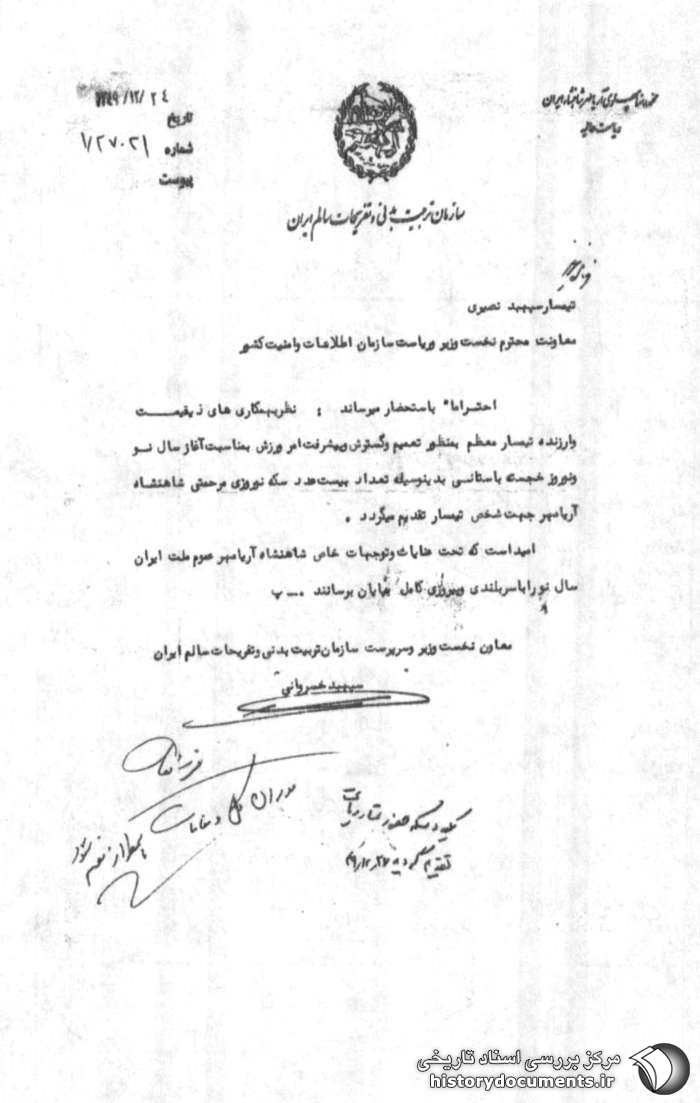 ۱۳۴۹/۱۲/۲۴
تاریخ
شماره ۱/۲۷۰۲۱
پیوست
ریاست عالیه
سازمان تربیت بدنی و تفریحات سالم ایران
تیمسار سپهبد نصیری
معاونت محترم نخست وزیر وریاست سازمان اطلاعات وامنیت کشور
احتراما" باستحضار میرساند : نظربهمکاری های ذیقیمت
وارزنده تیمسار معظم بمنظور تعمیم وگسترش وپیشرفت امر ورزش بمناسبت آغاز سال نو
ونوروز خجسته باستانی بدینوسیله تعداد بیست عدد سکه نوروزی مرحمتی شاهنشاه
آریامهر جهت شخص تیمسار تقدیم میگردد .
امید است که تحت عنایات وتوجهات خاص شاهنشاه آریامهر عموم ملت ایران
سال نورا باسربلندی وپیروزی کامل بپایان برسانند . ــ پ
معاون نخست وزیر وسرپرست سازمان تربیت بدنی وتفریحات سالم ایران
سپهبد خسروانی
تقدیم گردید ۴۹/۱۲/۲۷
مرکز بررسی اسناد تاریخی
historydocuments.ir